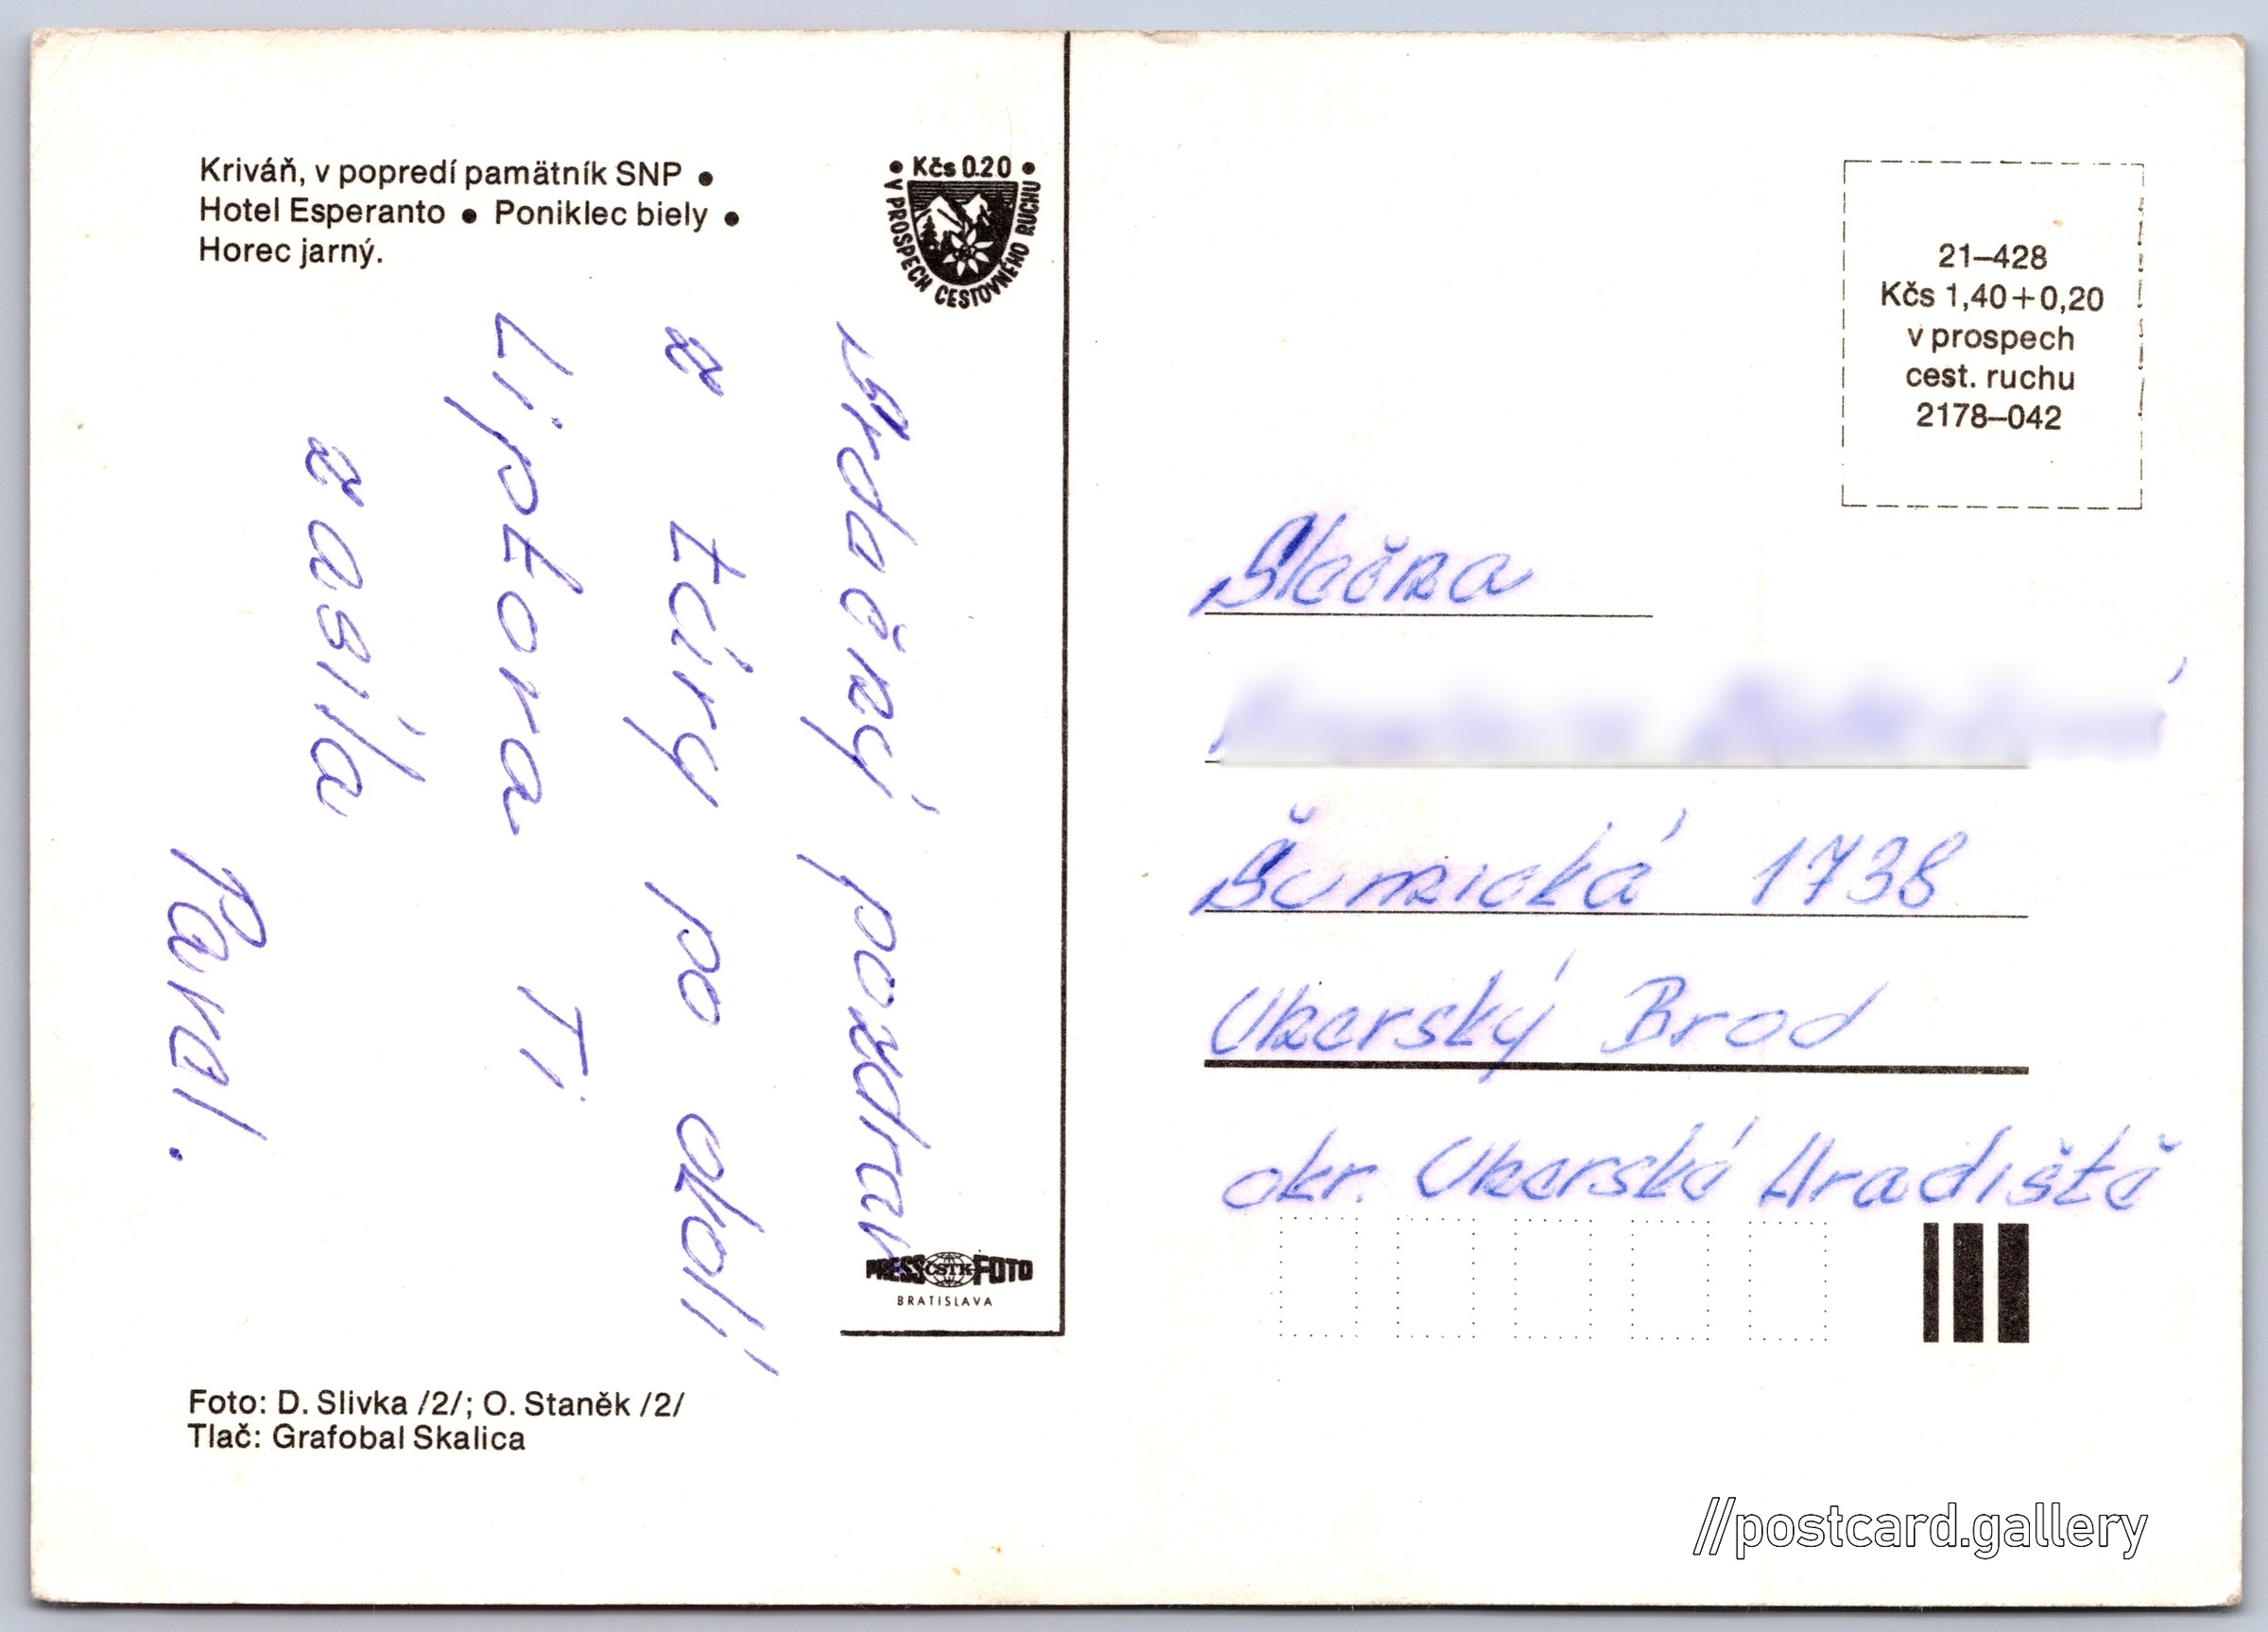 Kriváň, v popredí pamätník SNP •
Hotel Esperanto • Poniklec biely •
Horec jarný.
• Kčs 0.20 •
V PROSPECH CESTOVNÉHO RUCHU
Srdečný pozdrav
z túry po okolí
Liptova Ti
zasílá
Pavel.
PRESS ČSTK FOTO
BRATISLAVA
Foto: D. Slivka /2/; O. Staněk /2/
Tlač: Grafobal Skalica
21–428
Kčs 1,40+0,20
v prospech
cest. ruchu
2178–042
Slečna
Šumická 1738
Uherský Brod
okr. Uherské Hradiště
//postcard.gallery